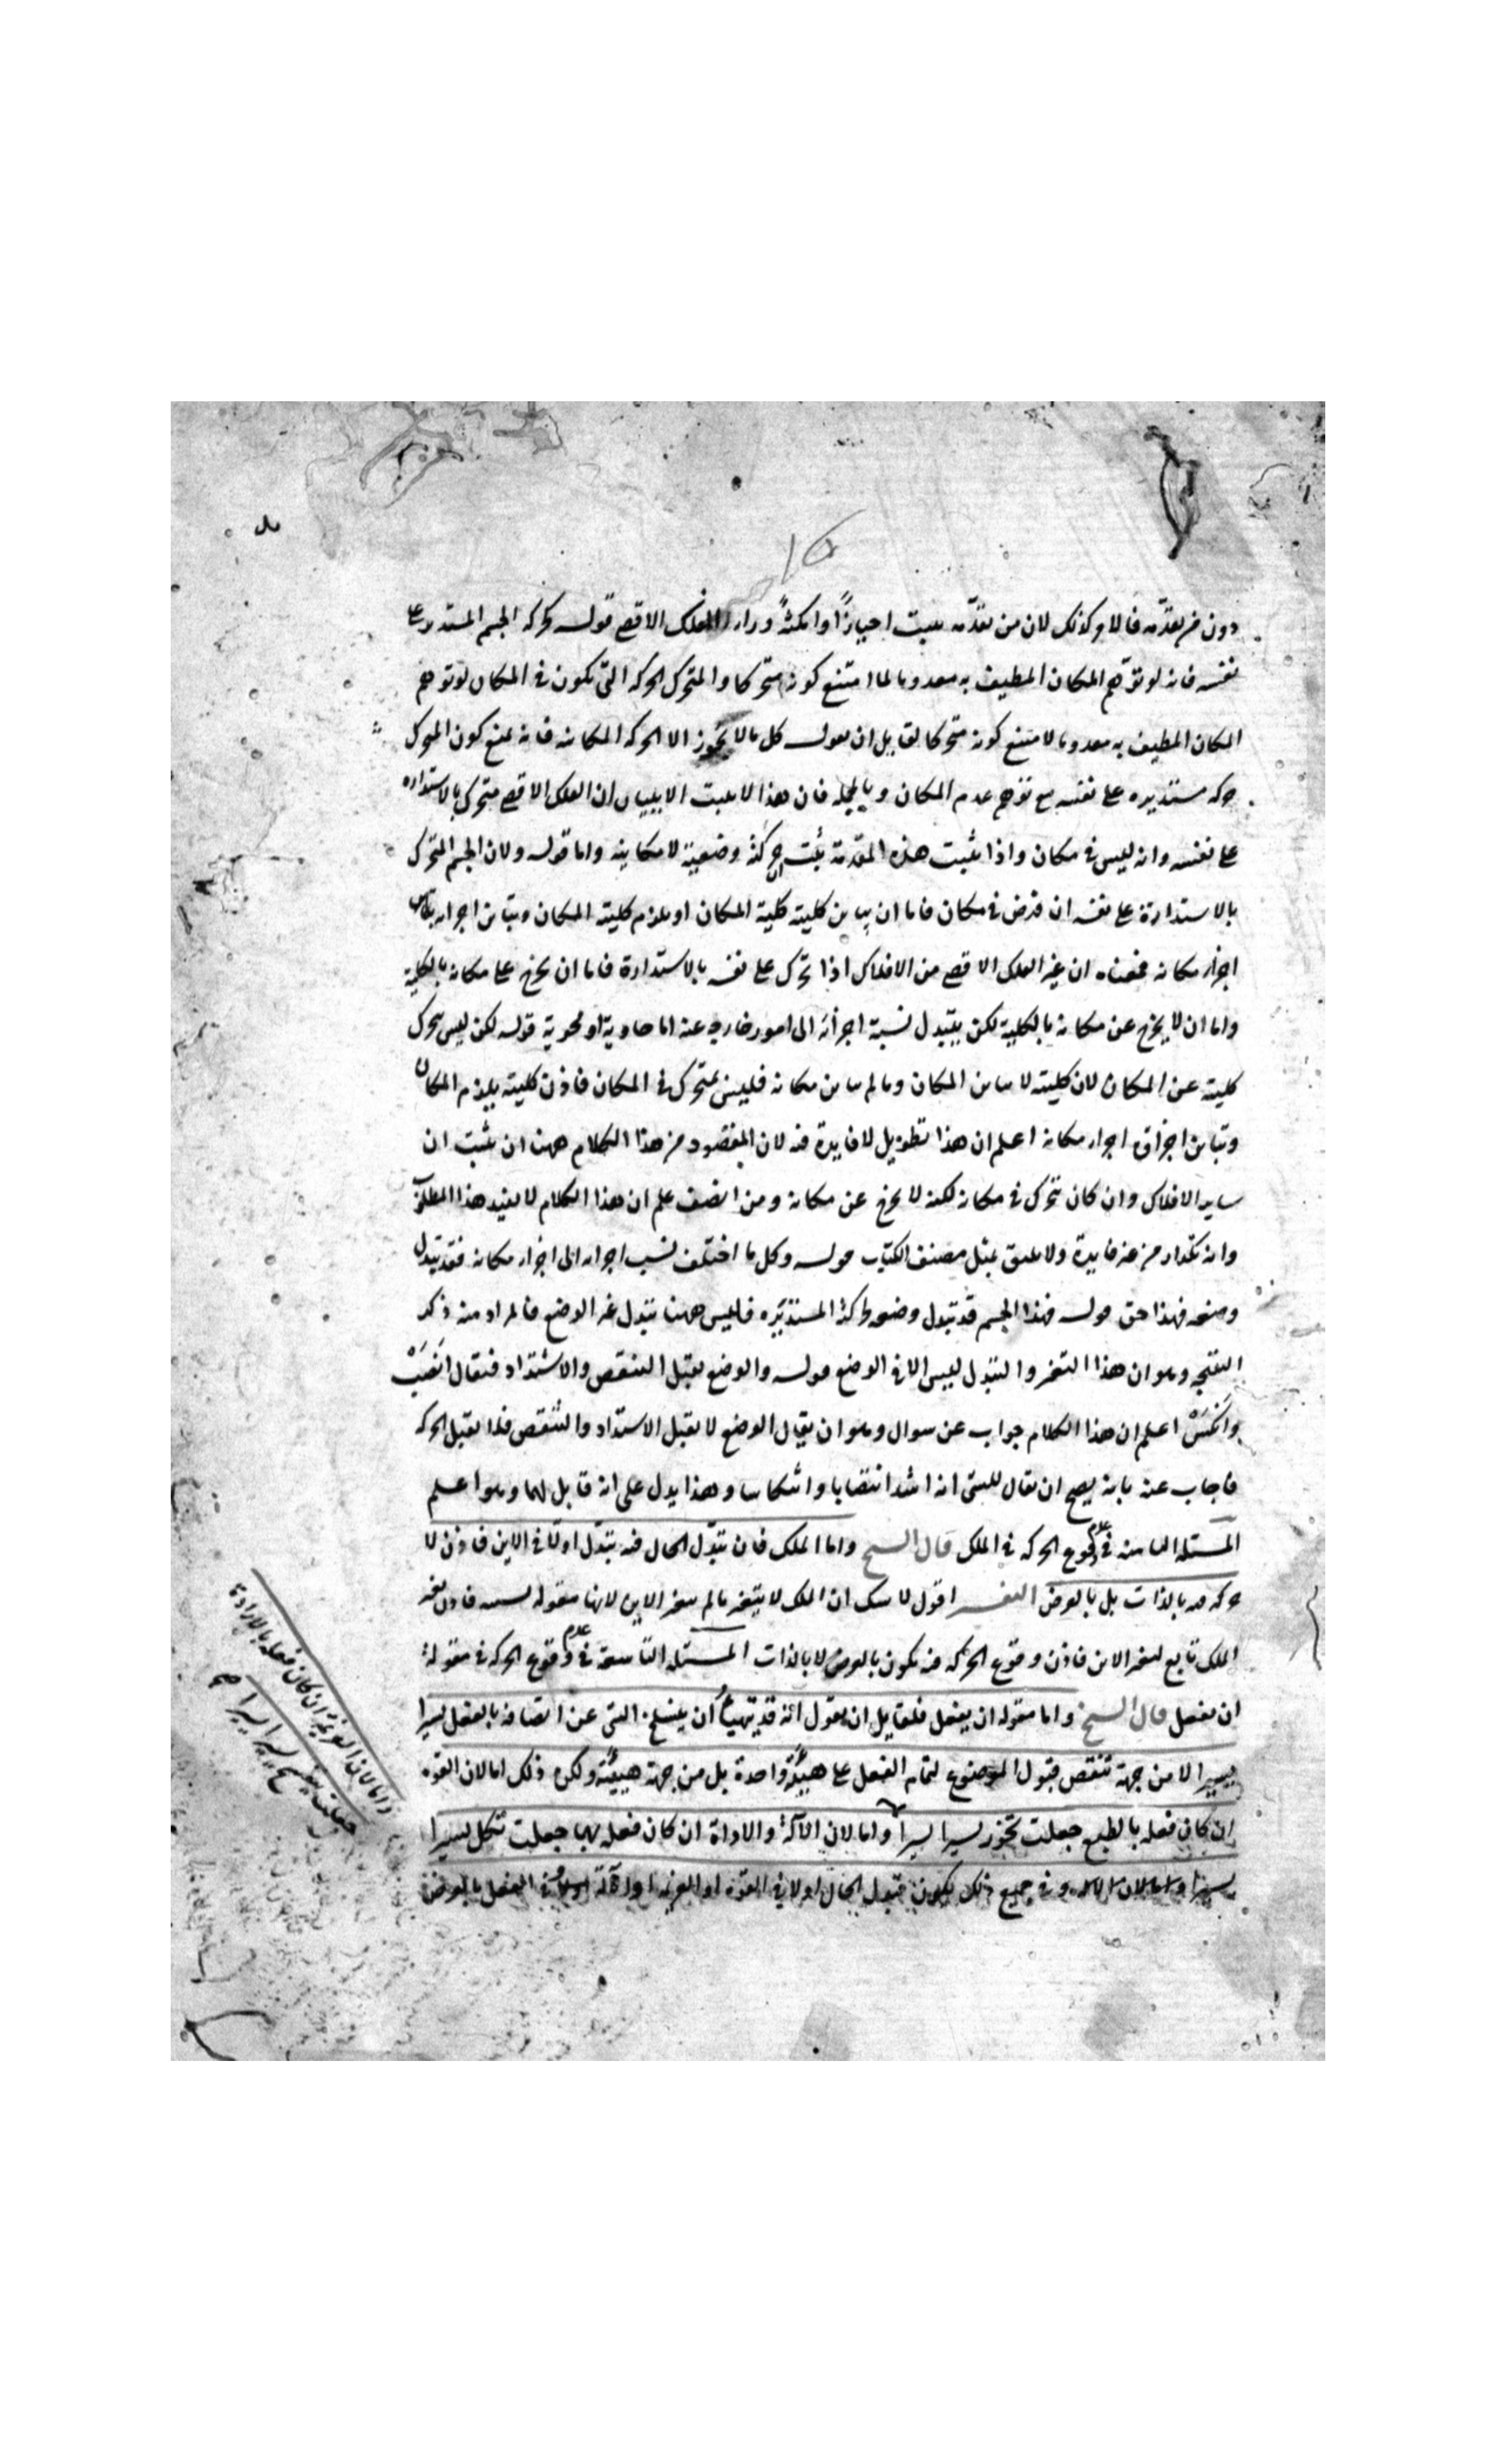 دون من تقدمه فالامر كذلك لان من تقدمه يثبت احيازا وامكنة وراء الفلك الاقصى قوله كحركة الجسم المستدير على
نفسه فانه لو توهم المكان المطيف به معدوما لما امتنع كونه متحركا والمتحرك الحركة التى تكون فى المكان لو توهم
المكان المطيف به معدوما لامتنع كونه متحركا لقايل ان يقول كل ما لا يجوز الا الحركة المكانيه فانه يمنع كون المتحرك
حركه مستديره على نفسه مع توهم عدم المكان وبالجمله فان هذا لا يثبت الا ببيان ان الفلك الاقصى متحرك بالاستداره
على نفسه وانه ليس فى مكان واذا ثبت هذه المقدمة ثبت ان حركته وضعية لا مكانيه واما قوله ولان الجسم المتحرك
بالاستدارة على نفسه ان فرض فى مكان فاما ان يباين كليته كلية المكان او يلزم كليته المكان ويباين اجزاءه
اجزاء مكانه فمعناه ان غير الفلك الاقصى من الافلاك اذا تحرك على نفسه بالاستدارة فاما ان يخرج على مكانه بالكلية
واما ان لا يخرج عن مكانه بالكلية لكن يتبدل نسبة اجزائه الى امور خارجه عنه اما حاوية او محوية قوله لكن ليس يتحرك
كليته عن المكان لان كليته لا يباين المكان وما لم يباين مكانه فليس بمتحرك فى المكان فاذن كليته يلزم المكان
وتباين اجزاؤه اجزاء مكانه اعلم ان هذا تطويل لا فايدة فيه لان المقصود من هذا الكلام ههنا ان يثبت ان
ساير الافلاك وان كان يتحرك فى مكانه لكنه لا يخرج عن مكانه ومن انصف علم ان هذا الكلام لا يفيد هذا المطلوب
وانه تكرار من غير فايدة ولا يليق بمثل مصنف الكتاب قوله وكل ما اختلف نسب اجزاءه الى اجزاء مكانه فقد يتبدل
وضعه فهذا حق قوله فهذا الجسم قد تبدل وضعه بحركته المستديره فليس ههنا تبدل غير الوضع فالمراد منه ذكر
النتيجه وهو ان هذا التغير والتبدل ليس الا فى الوضع قوله والوضع يقبل التنقص والاشتداد فيقال انصب
وانكس اعلم ان هذا الكلام جواب عن سوال وهو ان يقال الوضع لا يقبل الاشتداد والتنقص فلا يقبل الحركه
فاجاب عنه بانه يصح ان يقال للشى انه اشد انتصابا وانتكاسا وهذا يدل على انه قابل لهما وهو اعلم
المسئله الثامنه فى عدم وقوع الحركه فى الملك قال الشيخ واما الملك فان تبدل الحال فيه تبدل اولا فى الاين فاذن لا
حركه فيه بالذات بل بالعرض التفسير اقول لا شك ان الملك لا يتغير ما لم يتغير الاين لانها مقوله نسبيه فاذن تغير
الملك تابع لتغير الاين فاذن وقوع الحركه فيه يكون بالعرض لا بالذات المسئله التاسعة فى عدم وقوع الحركه فى مقولة
ان يفعل قال الشيخ واما مقوله ان يفعل فلقايل ان يقول انه قد يتهيأ ان ينسلخ الشى عن اتصافه بالفعل يسيرا
يسيرا لا من جهة تنقص قبول الموضوع لتمام الفعل على هيئة واحدة بل من جهة هيئته ولكن ذلك اما لان القوه
ان كان فعله بالطبع جعلت تخور يسيرا يسيرا واما لان الآلة والاداة ان كان فعله بهما جعلت تكل يسيرا
يسيرا وفى جميع ذلك يكون تبدل الحال اولا فى القوه او العزيمه او الآلة ثم فى الفعل بالعرض
واما لان العزيمة ان كان فعله بالارادة
جعلت ينفسخ يسيرا يسيرا صح